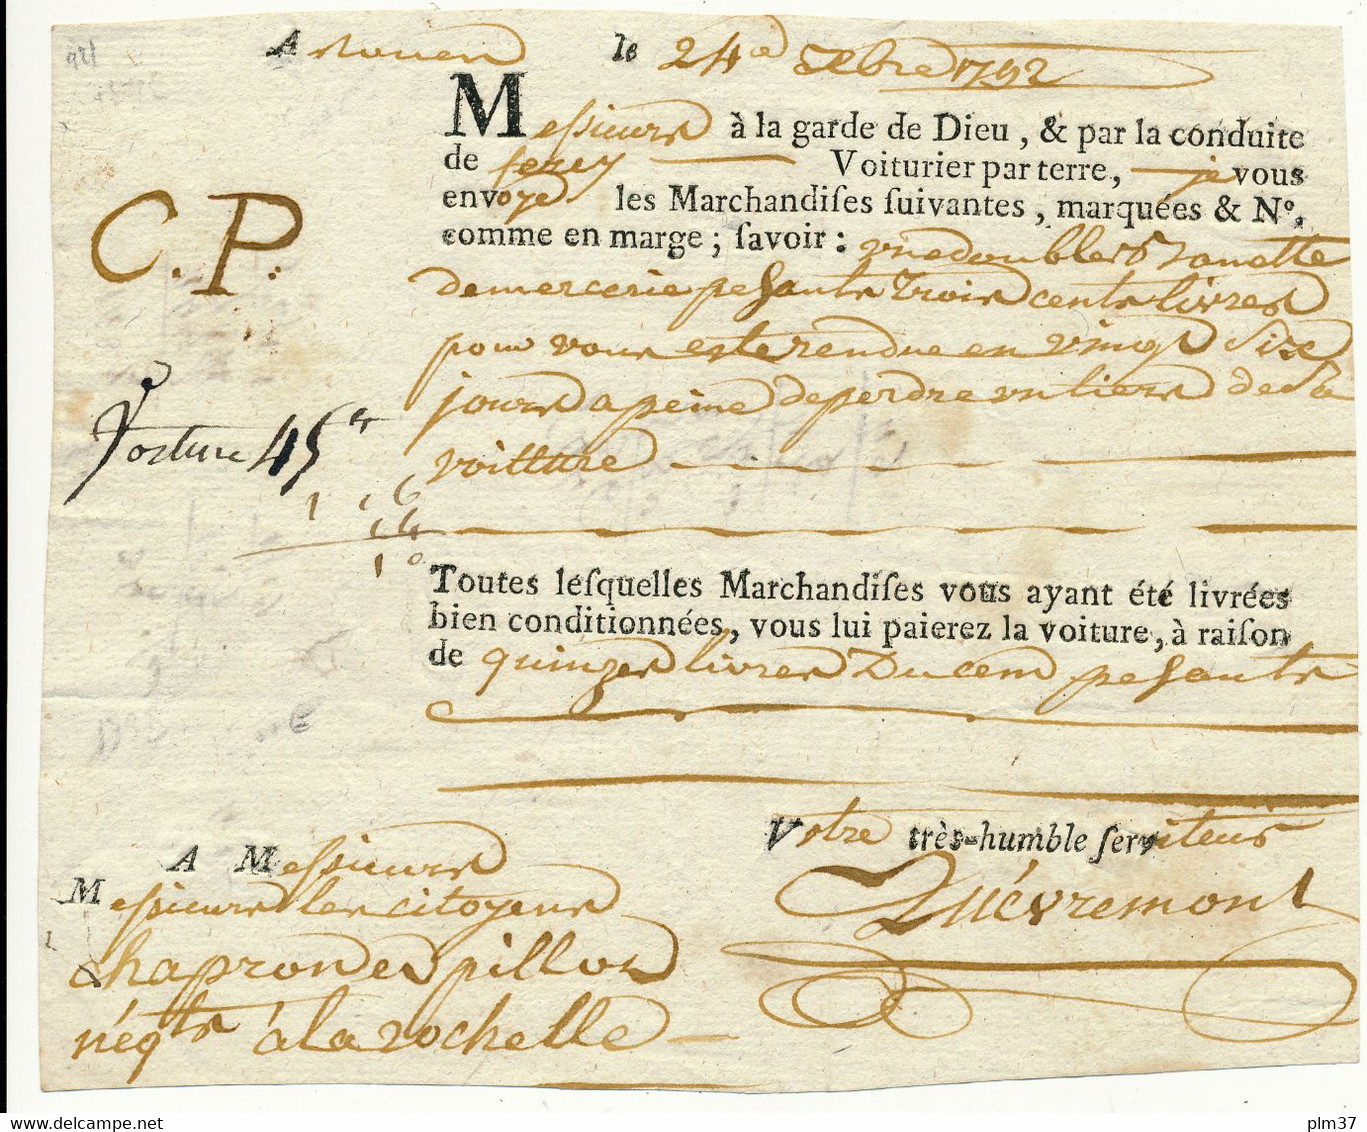 A rouen le 24e Xbre 1792
Messieurs à la garde de Dieu, & par la conduite
de ferey Voiturier par terre, je vous
envoye les Marchandiſes ſuivantes, marquées & No.
comme en marge; ſavoir: vne double
de mercerie pesante Trois cents livres
pour vous este rendue en vingt Six
jours a peine de perdre un tiers de la
voitture
C. P.
Voiture 45
Toutes leſquelles Marchandiſes vous ayant été livrées
bien conditionnées, vous lui paierez la voiture, à raiſon
de quinze livres Du cem pesants
Votre très-humble ſerviteur
Quévremont
A Messieurs
Messieurs les citoyens
chapron et pillos
négts à la rochelle
www.delcampe.net
plm37